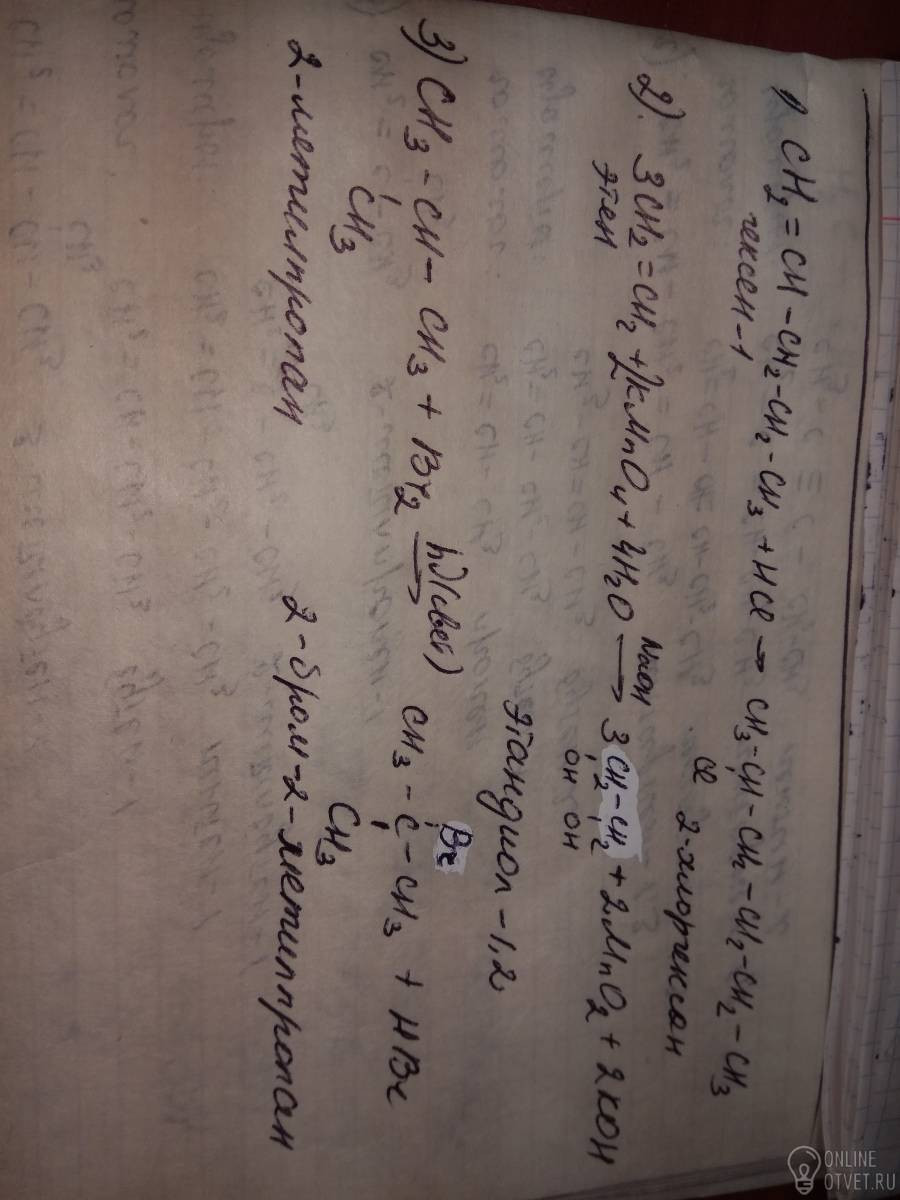 1) CH2=CH-CH2-CH2-CH3+HCl→CH3-CH-CH2-CH2-CH2-CH3
Cl
гексен-1 2-хлоргексан
2). 3CH2=CH2+2KMnO4+4H2O NaOH→ 3CH2-CH2+2MnO2+2KOH
OH OH
Этен
Этандиол-1,2
Br
3) CH3-CH-CH3+Br2 hν(свет)→ CH3-C-CH3+HBr
CH3 CH3
2-метилпропан 2-бром-2-метилпропан
ONLINE
OTVET.RU